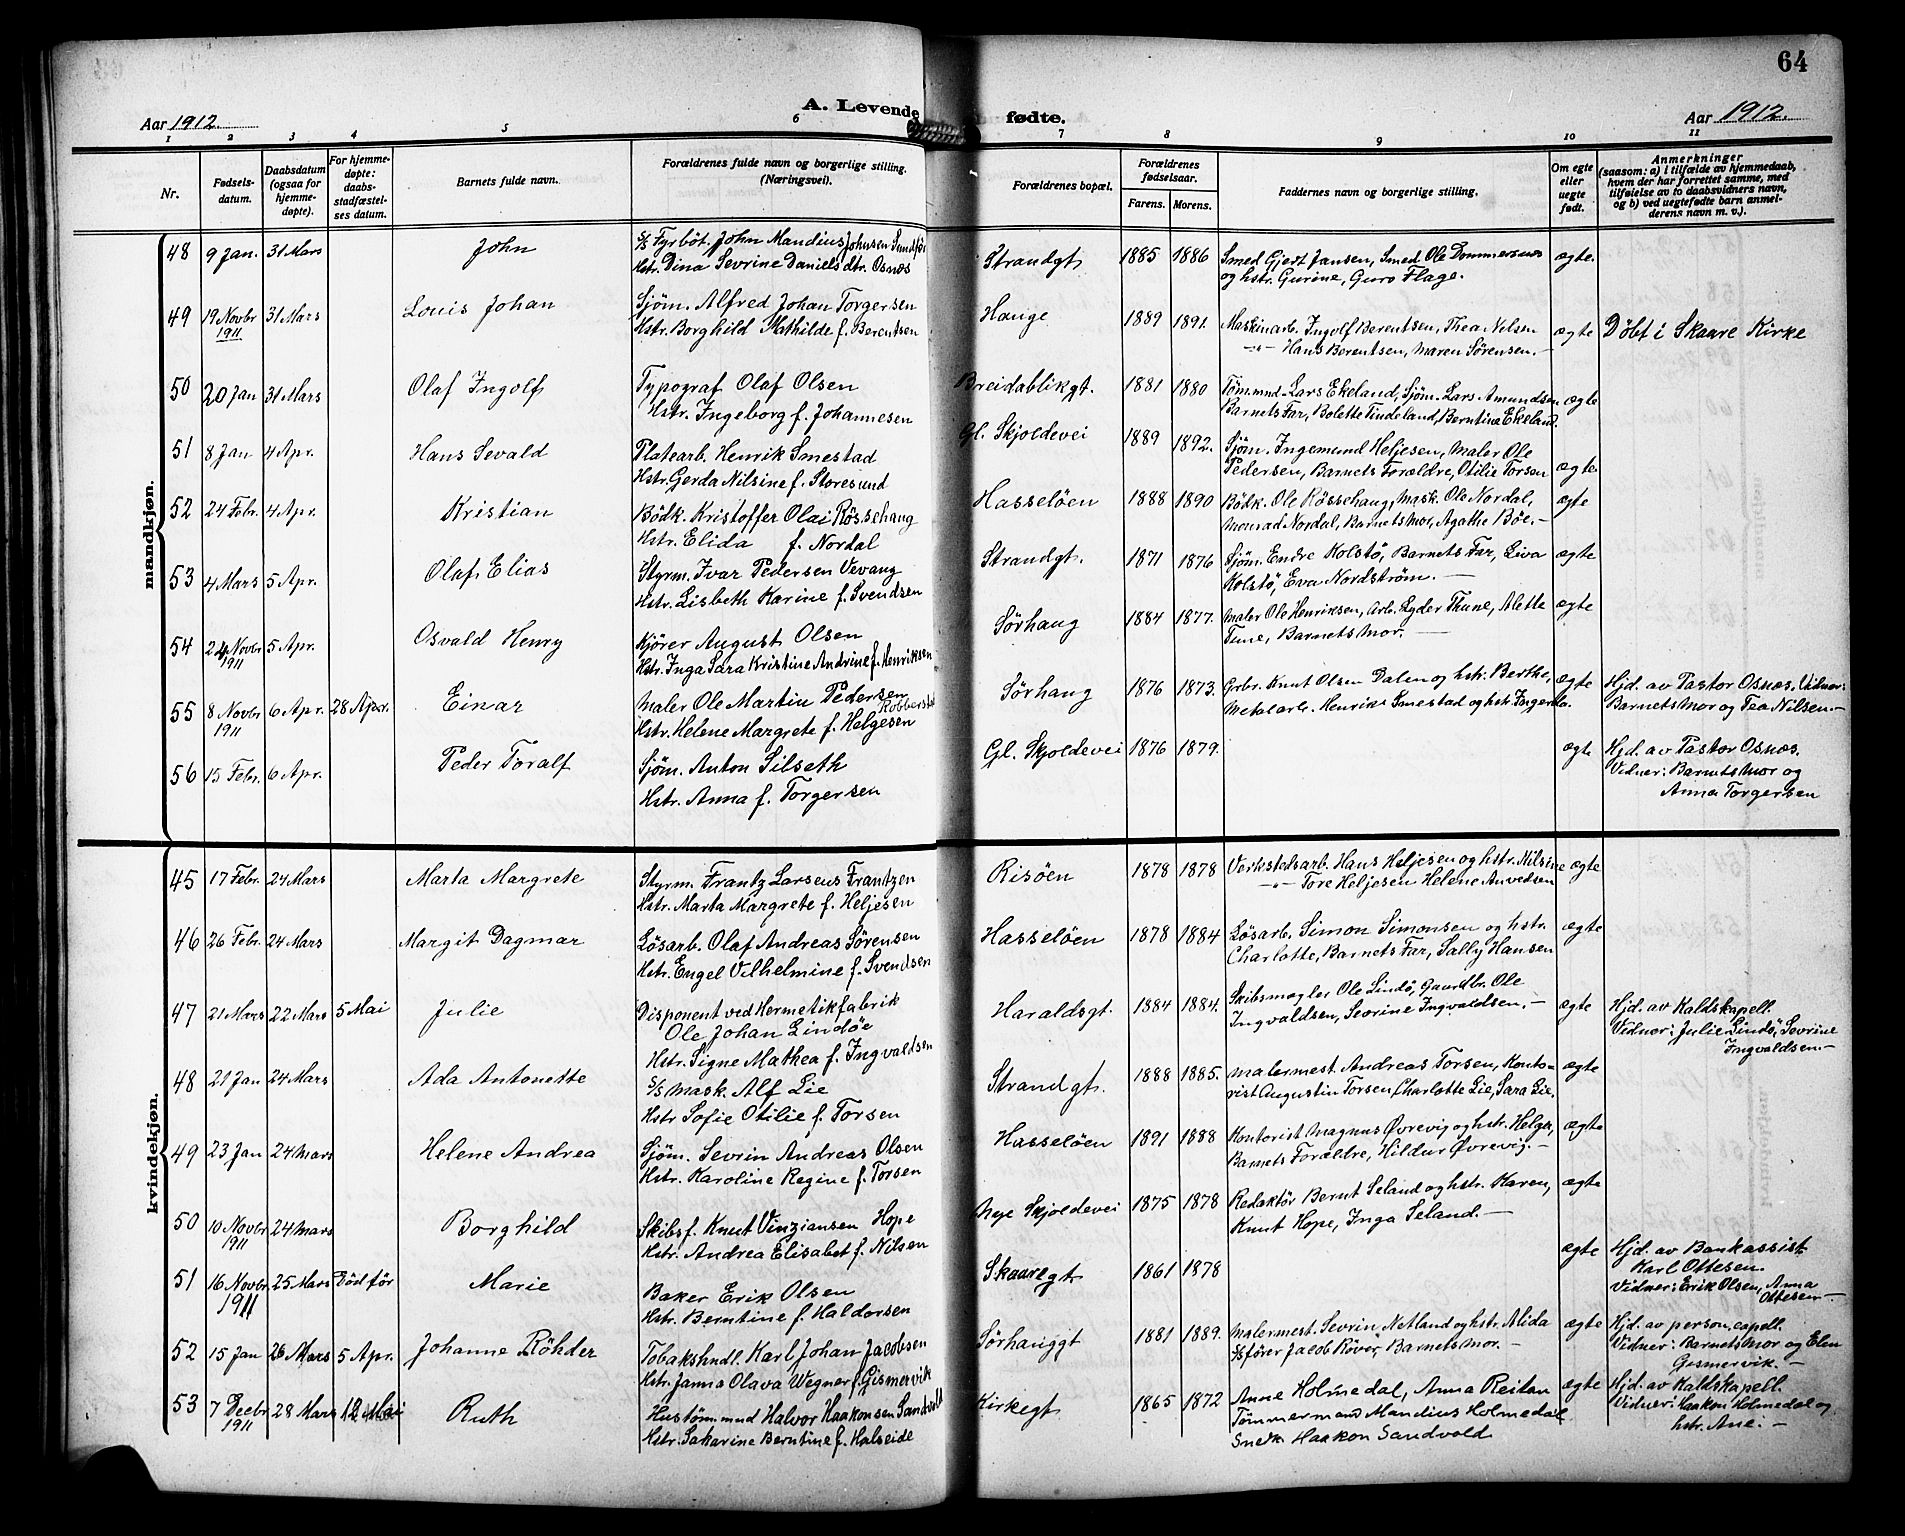 64
A. Levende fødte.
Aar 1912.
Aar 1912.
1 2 3 4 5 6 7 8 9 10 11
Nr.
Fødsels-
datum.
Daabsdatum
(ogsaa for
hjemme-
døpte).
For hjemme-
døpte:
daabs-
stadfæstel-
ses datum.
Barnets fulde navn.
Forældrenes fulde navn og borgerlige stilling.
(Næringsvei).
Forældrenes bopæl.
Forældrenes
fødselsaar.
Farens. Morens.
Faddernes navn og borgerlige stilling.
Om egte
eller
uegte
født.
Anmerkninger
(saasom: a) i tilfælde av hjemmedaab,
hvem der har forrettet samme, med
tilføielse av to daabsvidners navn,
og b) ved uegtefødte barn anmel-
derens navn m. v.).
mandkjøn.
48 9 Jan. 31 Mars John S/S Fyrböt. John Mandius Johnsen
Hstr. Dina Sevrine Danielsdtr. Osnæs
Strandgt 1885 1886 Smed Gjert Jansen, Smed Ole Dommersnæs
og hstr. Gurine, Guro Flage. ægte.
49 19 Novbr 1911 31 Mars Louis Johan Sjöm. Alfred Johan Torgersen
Hstr. Borghild Mathilde f. Berentsen
Hauge 1889 1891. Maskinarb. Ingolf Berentsen, Thea Nilsen
-"- Hans Berentsen, Maren Sörensen. - ægte Döbt i Skaare Kirke
50 20 Jan 31 Mars Olaf Ingolf Typograf Olaf Olsen
Hstr. Ingeborg f. Johannesen
Breidablikgt. 1881 1880 Tömmnd. Lars Ekeland, Sjöm. Lars Amundsen
Barnets Far, Bolette Tindeland, Berntine Ekeland. ægte
51 8 Jan 4 Apr. Hans Sevald Platearb. Henrik Smestad
Hstr. Gerda Nilsine f. Storesund
Gl. Skjoldevei 1889 1892. Sjöm. Ingemund Heljesen, Maler Ole
Pedersen, Barnets Forældre, Otilie Torsen ægte
52 24 Febr. 4 Apr. Kristian Bödk. Kristoffer Olai Rössehaug
Hstr. Elida f. Nordal
Hasselöen 1888 1890 Bödk. Ole Rössehaug, Mask. Ole Nordal,
Monrad Nordal, Barnets Mor, Agathe Böe. - ægte
53 4 Mars 5 Apr. Olaf Elias Styrm. Ivar Pedersen Vevang
Hstr. Lisbeth Karine f. Svendsen
Strandgt. 1871 1876 Sjöm. Endre Kolstö, Barnets Far, Liva
Kolstö, Eva Nordström. - ægte
54 24 Novbr 1911 5 Apr. Osvald Henry Kjörer August Olsen
Hstr. Inga Sara Kristine Andrine f. Henriksen
Sörhaug 1884 1877. Maler Ole Henriksen, Arb. Egder Thune, Alette
Tune, Barnets Mor. - ægte
55 8 Novbr 1911 6 Apr. 28 Apr. Einar Maler Ole Martin Pedersen
Hstr. Helene Margrete f. Helgesen
Sörhaug 1876 1873. Grbr. Knut Olsen Dalen og hstr. Berthe,
Metalarb. Henrik Smestad og hstr. Ingerda. ægte Hjd. av Pastor Osnæs, Vidner:
Barnets Mor og Tea Nilsen. -
56 15 Febr. 6 Apr. Peder Toralf Sjöm. Anton Silseth
Hstr. Anna f. Torgersen
Gl. Skjoldevei 1876 1879. ægte Hjd. av Pastor Osnæs.
Vidner: Barnets Mor og
Anna Torgersen
kvindekjøn.
45 17 Febr. 24 Mars Marta Margrete Styrm. Frantz Larsens Frantzen
Hstr. Marta Margrete f. Heljesen
Risöen 1878 1878 Verkstedsarb. Hans Heljesen og hstr. Nilsine
-"- Tore Heljesen Helene Anvedsen ægte
46 26 Febr. 24 Mars Margit Dagmar Lösarb. Olaf Andreas Sörensen
Hstr. Engel Vilhelmine f. Svendsen
Hasselöen 1878 1884 Lösarb. Simon Simonsen og hstr.
Charlotte, Barnets Far, Sally Hansen ægte
47 21 Mars 22 Mars 5 Mai Julie Disponent ved Hermetikfabrik
Ole Johan Lindöe
Hstr. Signe Mathea f. Ingvaldsen
Haraldsgt. 1884 1884. Skibsmægler Ole Lindö, Gaardbr. Ole
Ingvaldsen, Sevrine Ingvaldsen. - ægte Hjd. av Kaldskapell.
Vidner: Julie Lindö, Sevrine
Ingvaldsen. -
48 21 Jan 24 Mars Ada Antonette S/S Mask. Alf Lie
Hstr Sofie Otilie f. Torsen
Strandgt. 1888 1885. Malermest. Andreas Torsen, Konto-
rist Augustin Torsen, Charlotte Lie, Sara Lie. ægte
49 23 Jan 24 Mars Helene Andrea Sjöm. Sevrin Andreas Olsen
Hstr. Karoline Regine f. Torsen
Hasselöen 1891 1888 Kontorist Magnus Øvrevig og hstr. Helga,
Barnets Forældre, Hildur Øvrevig. - ægte
50 10 Novbr 1911 24 Mars Borghild Skibsf. Knut Vinziansen Hope
Hstr. Andrea Elisabet f. Nilsen
Nye Skjoldevei 1875 1878 Redaktör Bernt Seland og hstr. Karen,
Knut Hope, Inga Seland. - ægte
51 16 Novbr. 1911 25 Mars Död för Marie Baker Erik Olsen
Hstr. Berntine f. Haldorsen
Skaaregt 1861 1878 ægte Hjd. av Bankassist.
Karl Ottesen.
Vidner: Erik Olsen, Anna
Ottesen -
52 15 Jan 26 Mars 5 Apr. Johanne Röhder Tobakshndl. Karl Johan Jacobsen
Hstr. Janna Olava Wegner f. Gismervik
Sörhauggt 1881 1889. Malermest. Sevrin Netland og hstr. Alida
S/sförer Jacob Röver, Barnets Mor. - ægte Hjd. av person. capell.
Vidner: Barnets Mor og Elen
Gismervik. -
53 7 Decbr 1911 28 Mars 12 Mai Ruth Hustömmnd Halvor Haakonsen Sandvold
Hstr. Sakarine Berntine f. Halseide
Kirkegt 1865 1872 Anne Holmedal, Anna Reitan
Tömmermand Mandius Holmedal
Snedk. Haakon Sandvold ægte Hjd. av Kaldskapell.
Vidner: Haakon Holmedal og
hstr. Ane. -